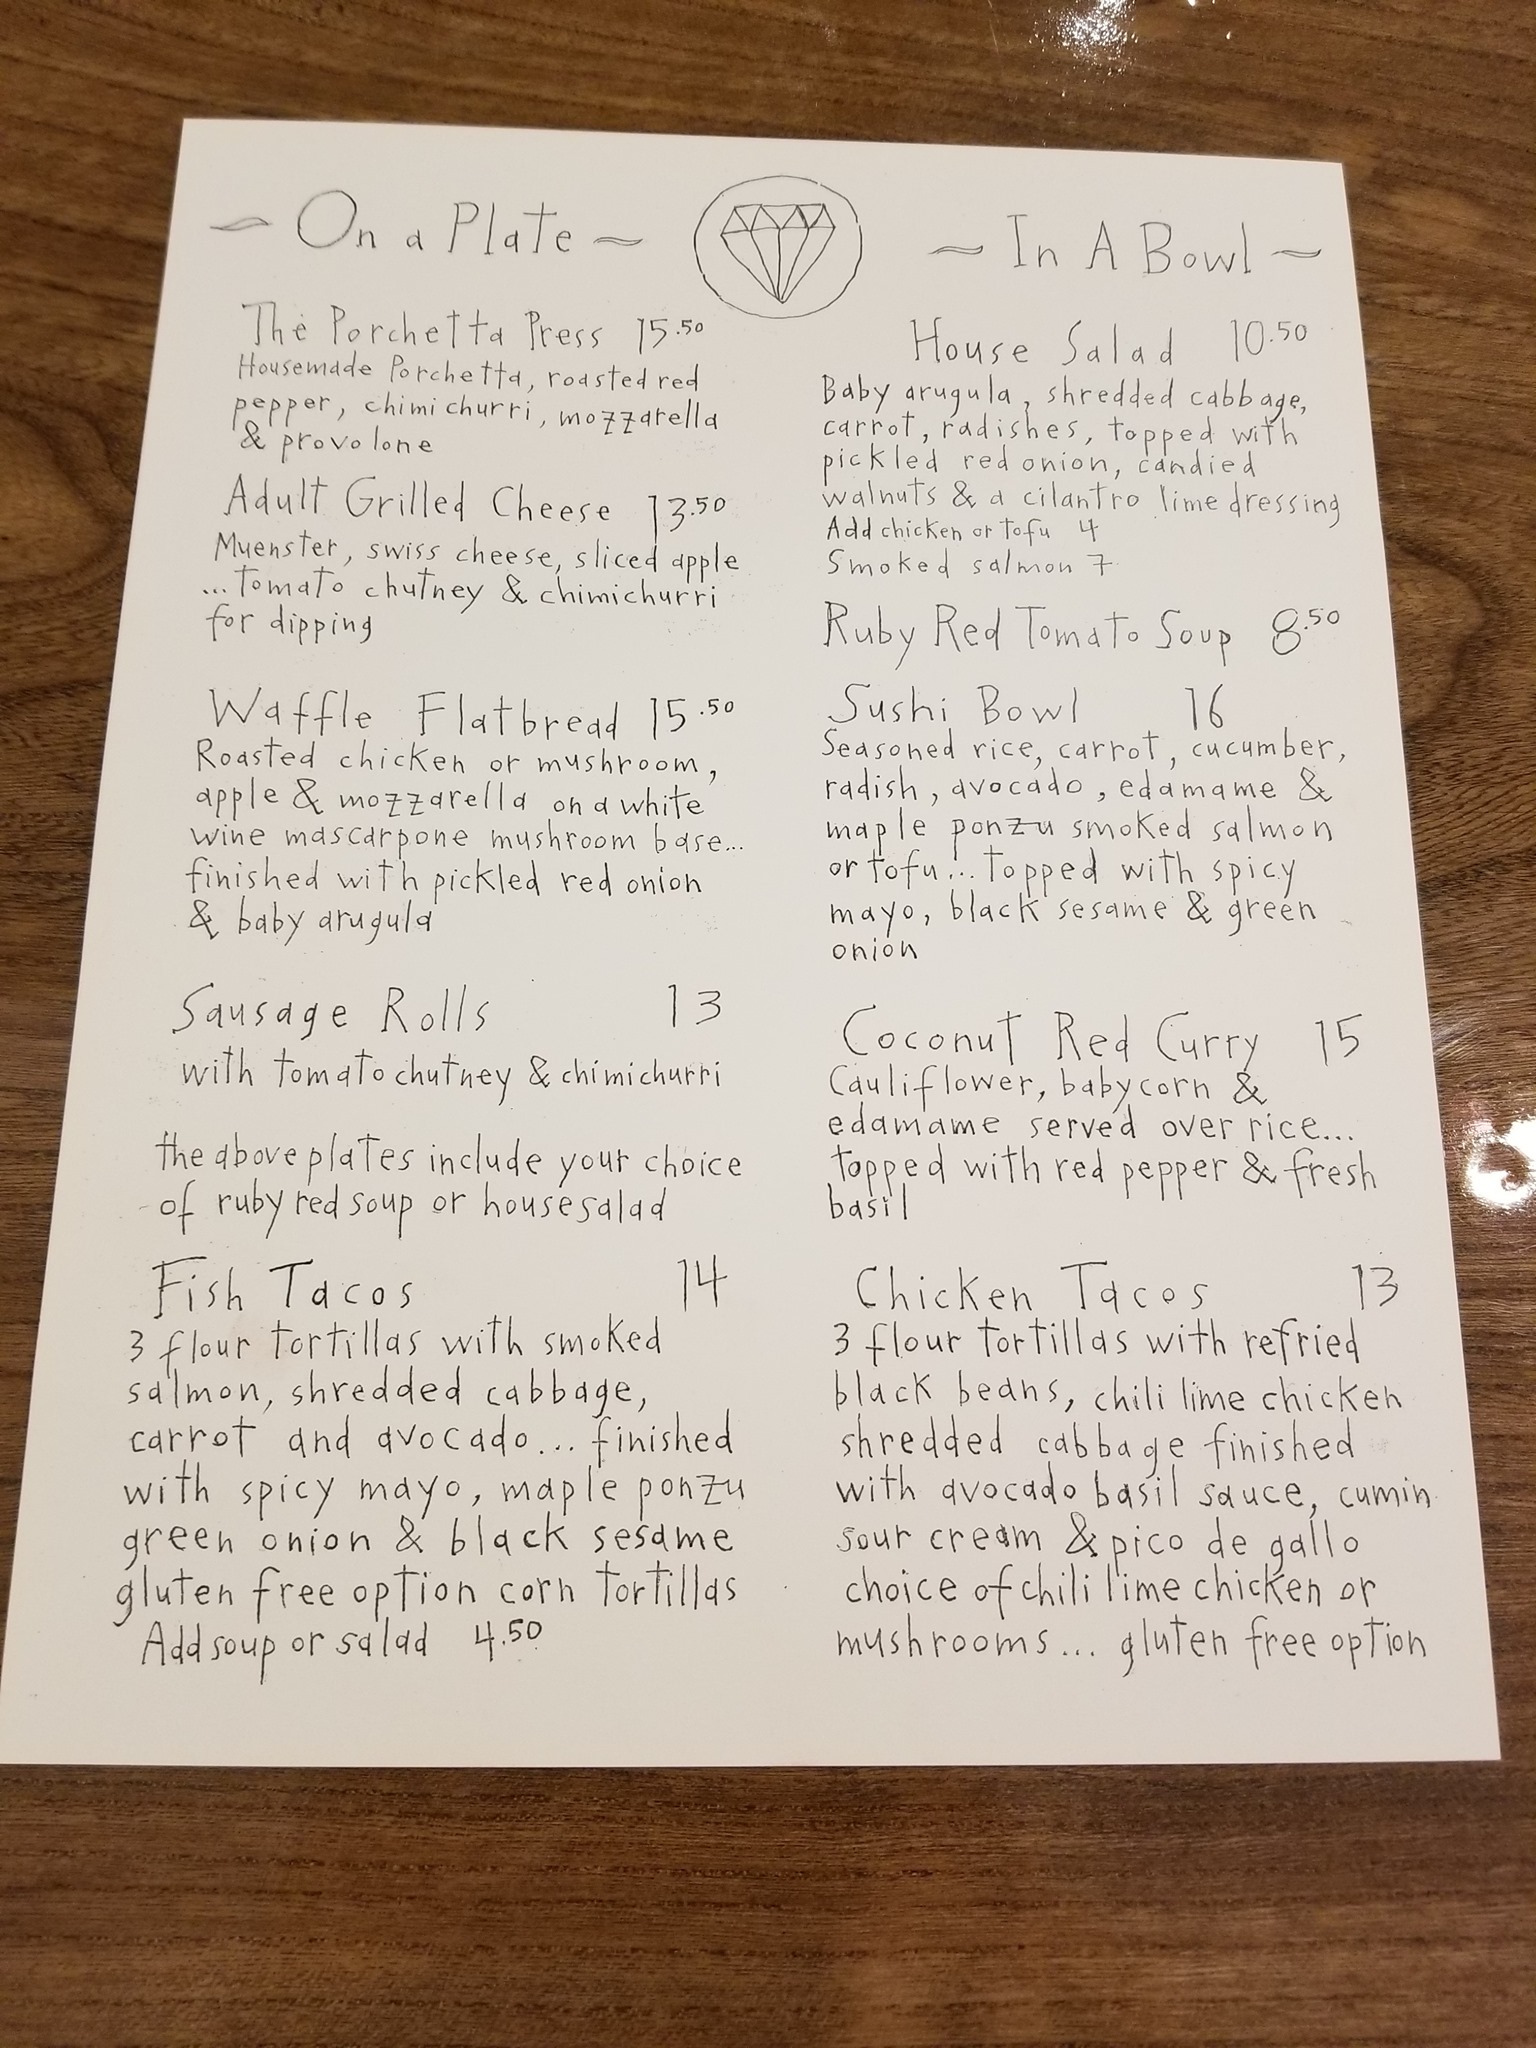 ~ On a Plate ~
The Porchetta Press 15.50
Housemade Porchetta, roasted red
pepper, chimichurri, mozzarella
& provolone
Adult Grilled Cheese 13.50
Muenster, swiss cheese, sliced apple
...tomato chutney & chimichurri
for dipping
Waffle Flatbread 15.50
Roasted chicken or mushroom,
apple & mozzarella on a white
wine mascarpone mushroom base...
finished with pickled red onion
& baby arugula
Sausage Rolls 13
with tomato chutney & chimichurri
the above plates include your choice
of ruby red soup or house salad
Fish Tacos 14
3 flour tortillas with smoked
salmon, shredded cabbage,
carrot and avocado... finished
with spicy mayo, maple ponzu
green onion & black sesame
gluten free option corn tortillas
Add soup or salad 4.50
~ In A Bowl ~
House Salad 10.50
Baby arugula, shredded cabbage,
carrot, radishes, topped with
pickled red onion, candied
walnuts & a cilantro lime dressing
Add chicken or tofu 4
Smoked salmon 7
Ruby Red Tomato Soup 8.50
Sushi Bowl 16
Seasoned rice, carrot, cucumber,
radish, avocado, edamame &
maple ponzu smoked salmon
or tofu... topped with spicy
mayo, black sesame & green
onion
Coconut Red Curry 15
Cauliflower, baby corn &
edamame served over rice...
topped with red pepper & fresh
basil
Chicken Tacos 13
3 flour tortillas with refried
black beans, chili lime chicken
shredded cabbage finished
with avocado basil sauce, cumin
sour cream & pico de gallo
choice of chili lime chicken or
mushrooms... gluten free option